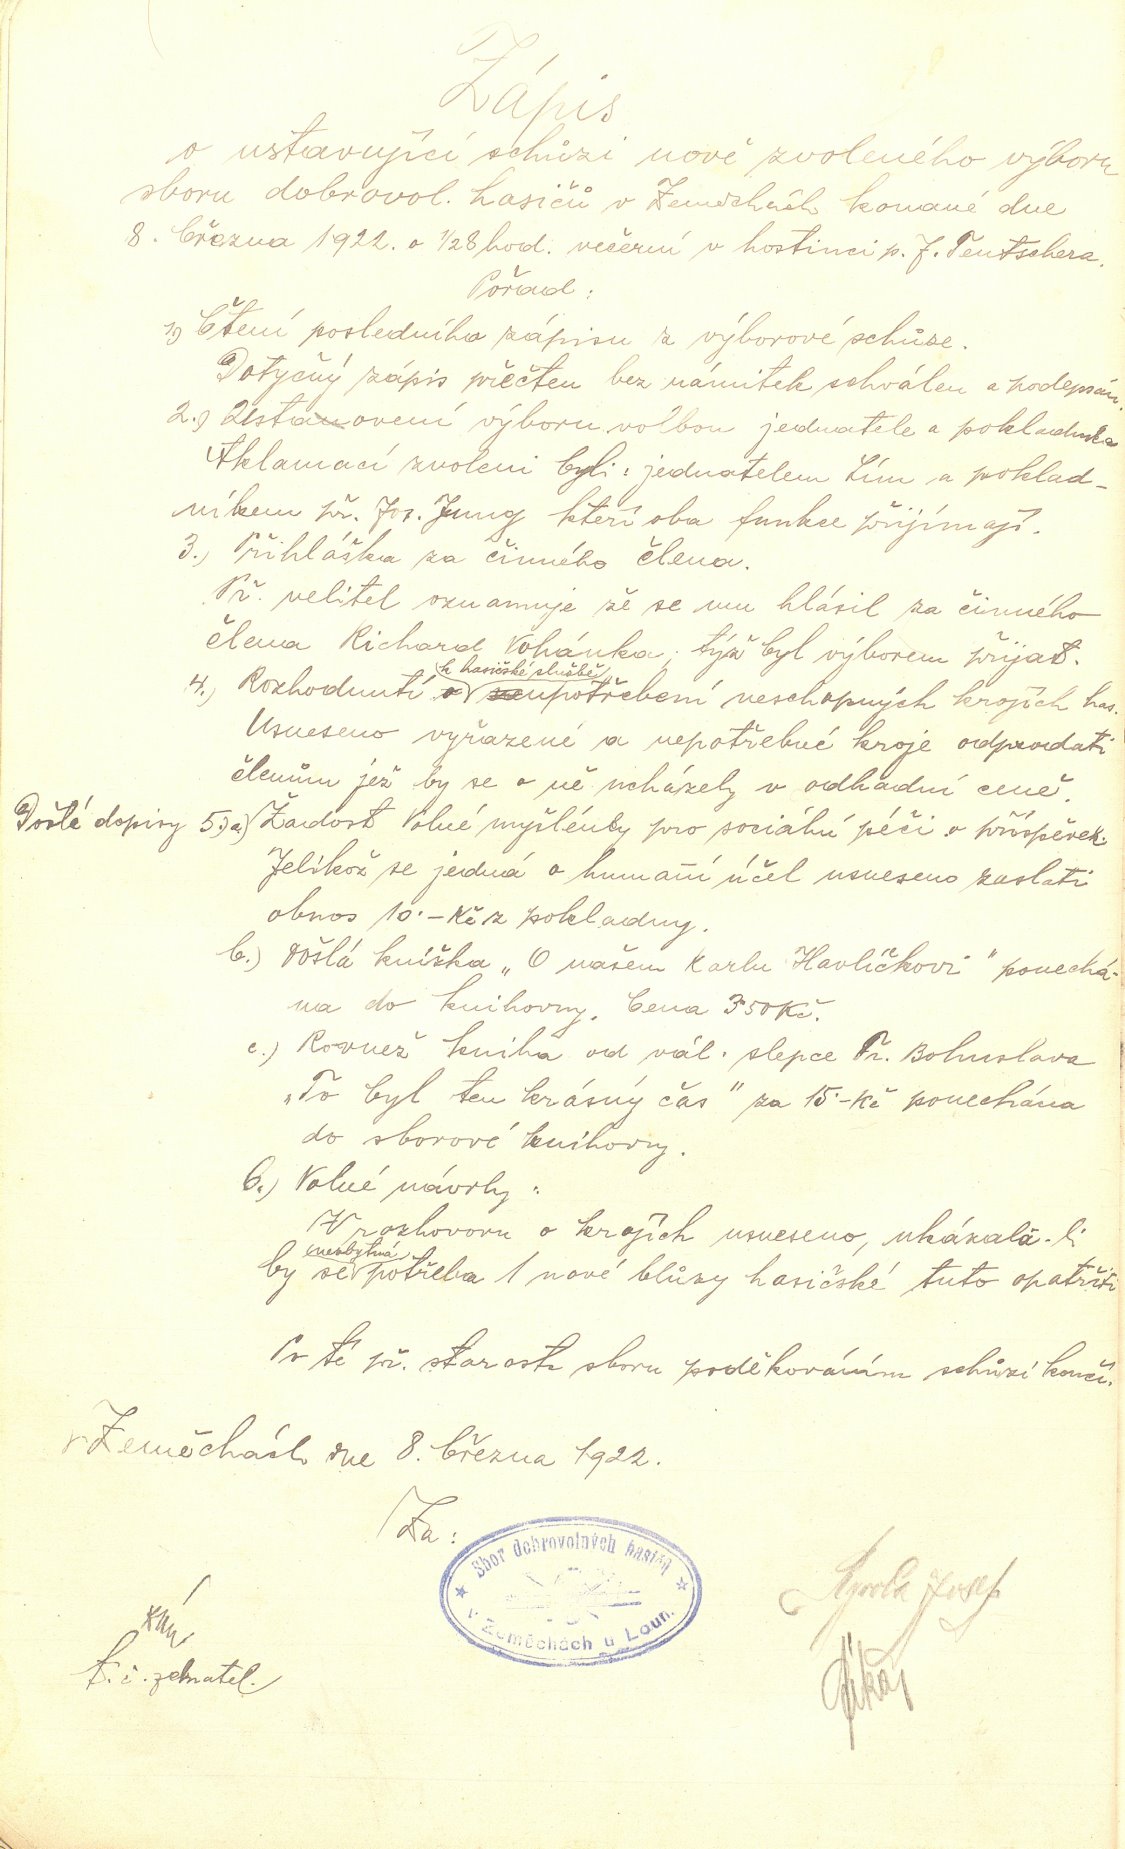 Zápis
o ustavující schůzi nově zvoleného výboru
sboru dobrovol. hasičů v Zeměchách konané dne
8. března 1922. o 1/28 hod. večerní v hostinci p. J. Teutschera.
Pořad:
1) Čtení posledního zápisu z výborové schůze.
Dotyčný zápis přečten bez námitek schválen a podepsán.
2.) Ustanovení výboru volbou jednatele a pokladníka
Aklamací zvoleni byli: jednatelem Lím a poklad-
níkem př. Jos. Jung kteří oba funkce přijímají.
3.) Přihláška za činného člena.
Př. velitel oznamuje že se mu hlásil za činného
člena Richard Vohánka; týž byl výborem přijat.
k hasičské službě
4.) Rozhodnutí o upotřebení neschopných krojích has.
Usneseno vyřazené a nepotřebné kroje odprodati
členům jež by se o ně ucházely v odhadní ceně.
Došlé dopisy 5.) a) Žádost Volné myšlénky pro sociální péči o příspěvek.
Jelikož se jedná o humaní účel usneseno zaslati
obnos 10.– Kč z pokladny.
b.) Došlá knížka „O našem Karlu Havlíčkovi" ponechá-
na do knihovny. Cena 3·50 Kč.
c.) Rovněž kniha od vál. slepce Fr. Bohuslava
„To byl ten krásný čas" za 15·– Kč ponechána
do sborové knihovny.
6.) Volné návrhy:
V rozhovoru o krojích usneseno, ukázala-li
nezbytná
by se potřeba 1 nové blůzy hasičské tuto opatřiti
Po té př. starosta sboru poděkováním schůzi končí.
v Zeměchách dne 8. března 1922.
Za:
Sbor dobrovolných hasičů
v Zeměchách u Loun.
Josef
t. č. jednatel.